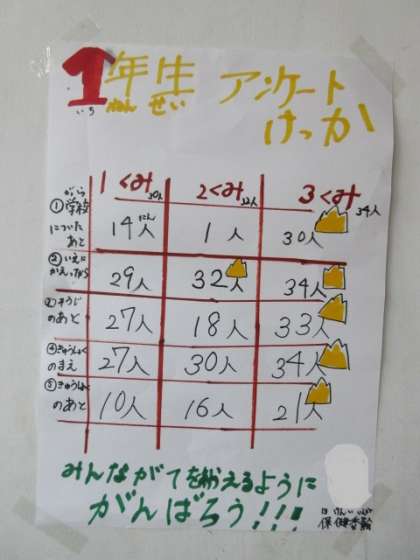 1年生 アンケート
いち ねん せい
けっか
1くみ 30人 2くみ 32人 3くみ 34人
①学校 がっこう
についた
あと
14人 にん 1人 30人
②いえに
かえってから
29人 32人 34人
③そうじ
のあと
27人 18人 33人
④きゅうしょく
のまえ
27人 30人 34人
⑤きゅうしょく
のあと
10人 16人 21人
みんながてを
えるように
がんばろう!!!
ほけん
保健